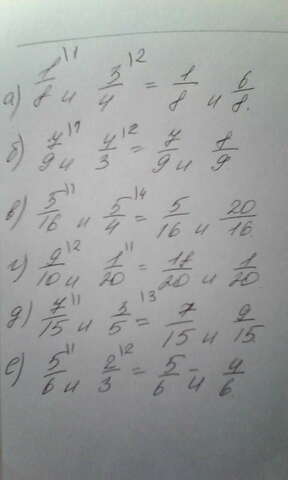 а) 1/8 \1 и 3/4 \2 = 1/8 и 6/8.
б) 7/9 \1 и 4/3 \2 = 7/9 и 8/9.
в) 5/16 \1 и 5/4 \4 = 5/16 и 20/16.
г) 9/10 \2 и 1/20 \1 = 18/20 и 1/20
д) 7/15 \1 и 3/5 \3 = 7/15 и 9/15.
е) 5/6 \1 и 2/3 \2 = 5/6 и 4/6.